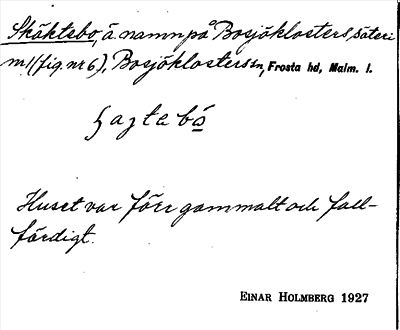 Skäktebo, ä. namn på Bosjöklosters säteri
m./(fig. nr 6), Bosjöklosters sn, Frosta hd, Malm. l.
Huset var förr gammalt och fall-
färdigt.
EINAR HOLMBERG 1927